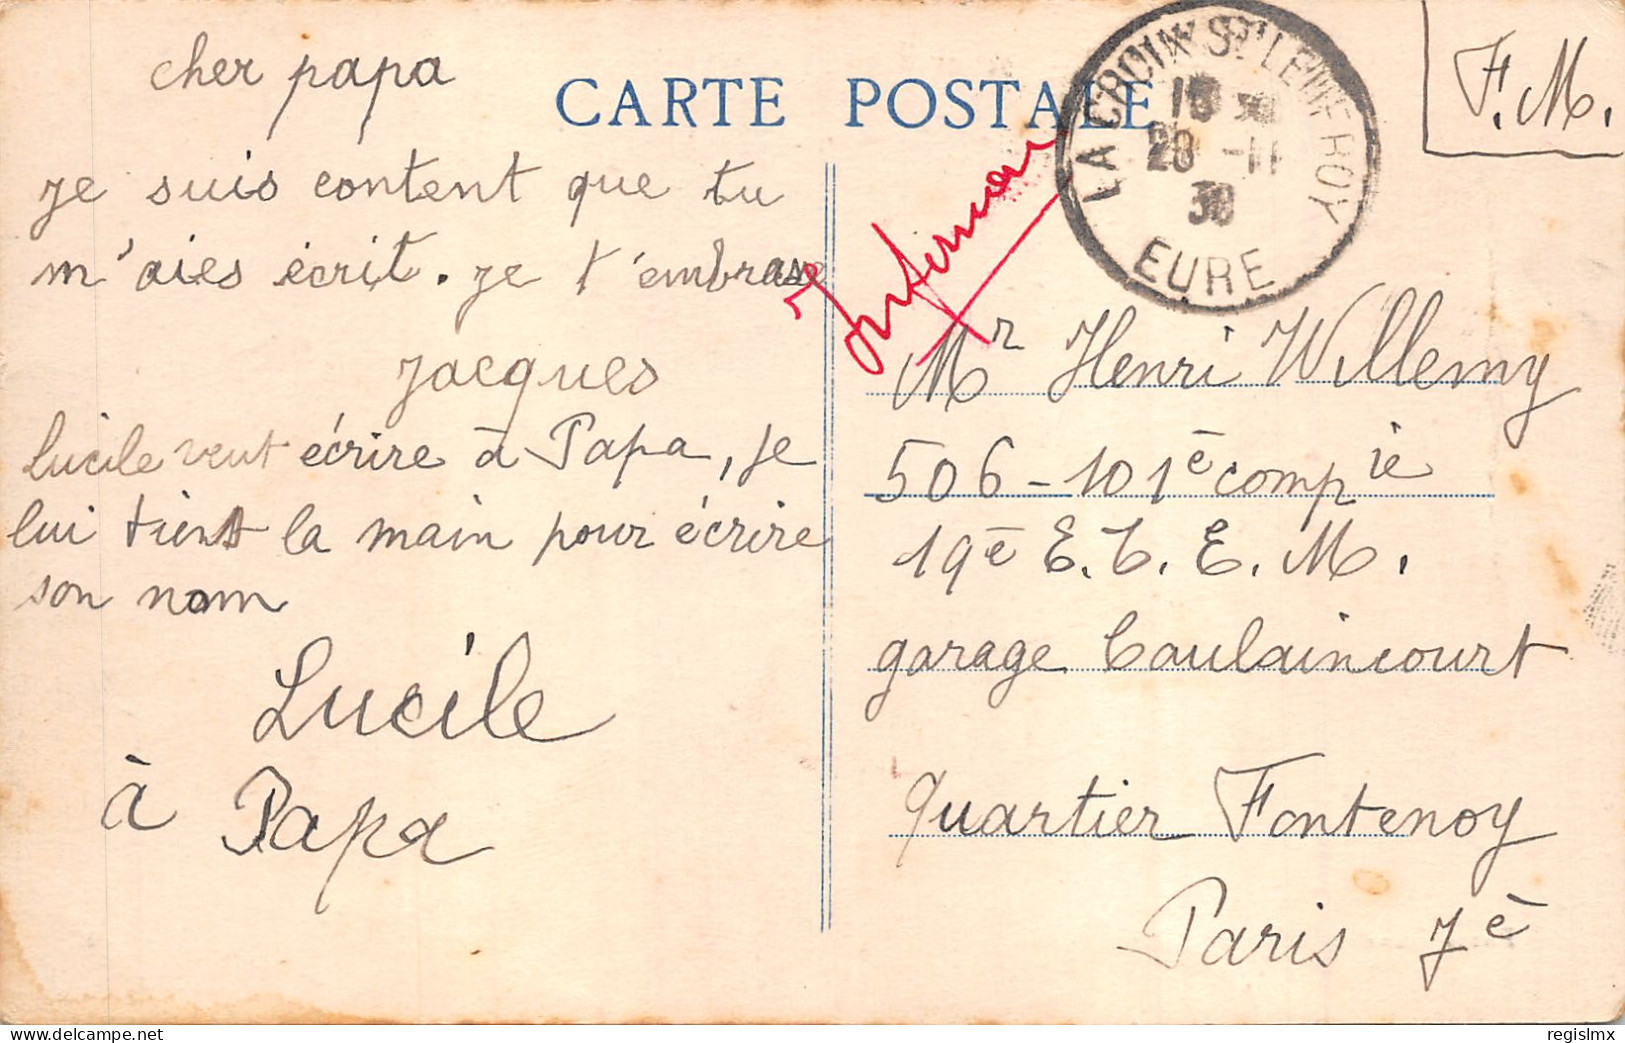 cher papa
je suis content que tu
m'aies écrit. je t'embrasse
Jacques
Lucile veut écrire à Papa, je
lui tient la main pour écrire
son nom
Lucile
à Papa
CARTE POSTALE
LA CROIX ST LEUFROY
28 -11
EURE
F.M.
Mr Henri Willemy
506-101è compie
19è E.T.E.M.
garage Caulaincourt
Quartier Fontenoy
Paris 7è
regislmx